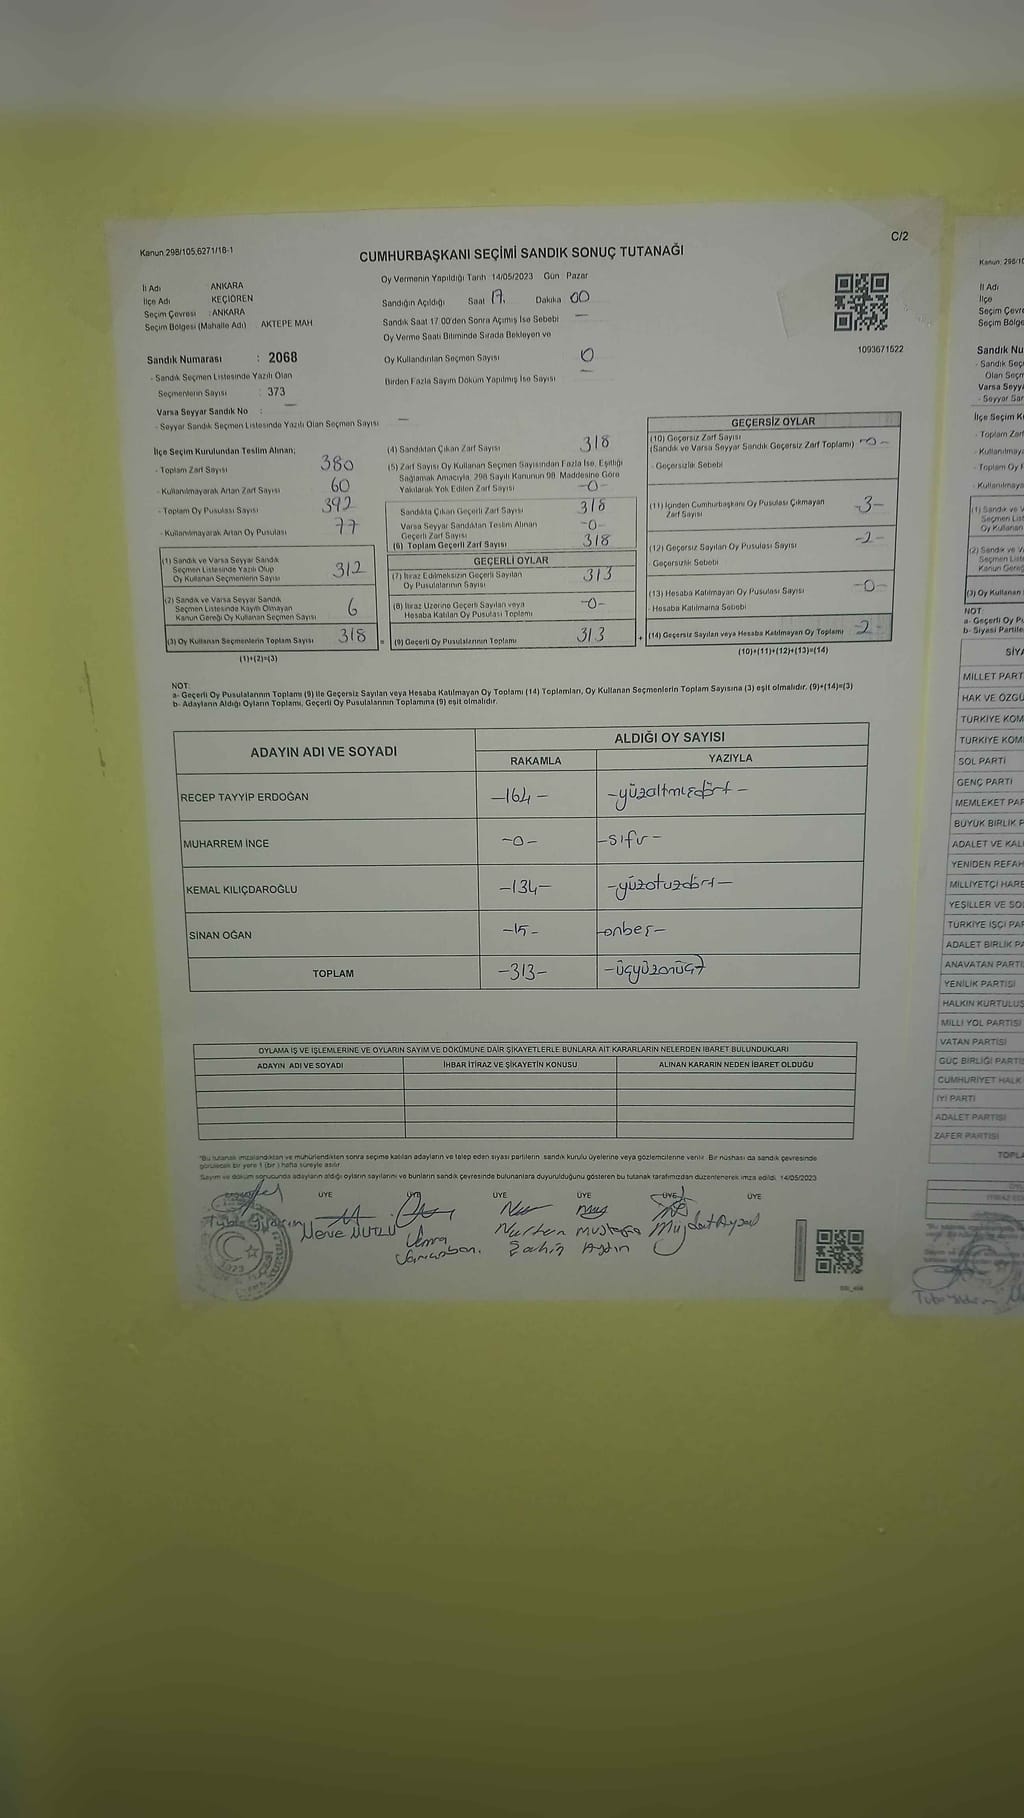 Kanun 298/105,6271/18-1
C/2
CUMHURBAŞKANI SEÇİMİ SANDIK SONUÇ TUTANAĞI
Oy Vermenin Yapıldığı Tarih 14/05/2023 Gün Pazar
İl Adı ANKARA
İlçe Adı KEÇİÖREN
Seçim Çevresi : ANKARA
Seçim Bölgesi (Mahalle Adı) AKTEPE MAH
Sandığın Açıldığı Saat 17. Dakika 00
Sandık Saat 17 00'den Sonra Açımış İse Sebebi —
Oy Verme Saati Bitiminde Sırada Bekleyen ve
Oy Kullandırılan Seçmen Sayısı 0
Birden Fazla Sayım Döküm Yapılmış İse Sayısı —
1093671522
Sandık Numarası : 2068
- Sandık Seçmen Listesinde Yazılı Olan
Seçmenlerin Sayısı : 373
Varsa Seyyar Sandık No : —
- Seyyar Sandık Seçmen Listesinde Yazılı Olan Seçmen Sayısı —
İlçe Seçim Kurulundan Teslim Alınan;
- Toplam Zarf Sayısı 380
- Kullanılmayarak Artan Zarf Sayısı 60
- Toplam Oy Pusulası Sayısı 392
- Kullanılmayarak Artan Oy Pusulası 77
(1) Sandık ve Varsa Seyyar Sandık
Seçmen Listesinde Yazılı Olup
Oy Kullanan Seçmenlerin Sayısı 312
(2) Sandık ve Varsa Seyyar Sandık
Seçmen Listesinde Kayıtlı Olmayan
Kanun Gereği Oy Kullanan Seçmen Sayısı 6
(3) Oy Kullanan Seçmenlerin Toplam Sayısı 318
(1)+(2)=(3)
(4) Sandıktan Çıkan Zarf Sayısı 318
(5) Zarf Sayısı Oy Kullanan Seçmen Sayısından Fazla İse, Eşitliği
Sağlamak Amacıyla, 298 Sayılı Kanunun 98. Maddesine Göre
Yakılarak Yok Edilen Zarf Sayısı -0-
Sandıkta Çıkan Geçerli Zarf Sayısı 318
Varsa Seyyar Sandıktan Teslim Alınan
Geçerli Zarf Sayısı -0-
(6) Toplam Geçerli Zarf Sayısı 318
GEÇERLİ OYLAR
(7) İtiraz Edilmeksizin Geçerli Sayılan
Oy Pusulalarının Sayısı 313
(8) İtiraz Üzerine Geçerli Sayılan veya
Hesaba Katılan Oy Pusulası Toplamı -0-
= (9) Geçerli Oy Pusulalarının Toplamı 313 +
GEÇERSİZ OYLAR
(10) Geçersiz Zarf Sayısı
(Sandık ve Varsa Seyyar Sandık Geçersiz Zarf Toplamı) -0-
- Geçersizlik Sebebi
(11) İçinden Cumhurbaşkanı Oy Pusulası Çıkmayan
Zarf Sayısı -3-
(12) Geçersiz Sayılan Oy Pusulası Sayısı -2-
- Geçersizlik Sebebi
(13) Hesaba Katılmayan Oy Pusulası Sayısı -0-
- Hesaba Katılmama Sebebi
(14) Geçersiz Sayılan veya Hesaba Katılmayan Oy Toplamı -2-
(10)+(11)+(12)+(13)=(14)
NOT:
a- Geçerli Oy Pusulalarının Toplamı (9) ile Geçersiz Sayılan veya Hesaba Katılmayan Oy Toplamı (14) Toplamları, Oy Kullanan Seçmenlerin Toplam Sayısına (3) eşit olmalıdır. (9)+(14)=(3)
b- Adayların Aldığı Oyların Toplamı, Geçerli Oy Pusulalarının Toplamına (9) eşit olmalıdır.
ADAYIN ADI VE SOYADI
ALDIĞI OY SAYISI
RAKAMLA YAZIYLA
RECEP TAYYİP ERDOĞAN -164- -yüzaltmışdört-
MUHARREM İNCE -0- -sıfır-
KEMAL KILIÇDAROĞLU -134- -yüzotuzdört-
SİNAN OĞAN -15- -onbeş-
TOPLAM -313- -üçyüzonüç-
OYLAMA İŞ VE İŞLEMLERİNE VE OYLARIN SAYIM VE DÖKÜMÜNE DAİR ŞİKAYETLERLE BUNLARA AİT KARARLARIN NELERDEN İBARET BULUNDUKLARI
ADAYIN ADI VE SOYADI İHBAR İTİRAZ VE ŞİKAYETİN KONUSU ALINAN KARARIN NEDEN İBARET OLDUĞU
"Bu tutanak imzalandıktan ve mühürlendikten sonra seçime katılan adayların ve talep eden siyasi partilerin sandık kurulu üyelerine veya gözlemcilerine verilir. Bir nüshası da sandık çevresinde
görülecek bir yere 1 (bir) hafta süreyle asılır
Sayım ve döküm sonucunda adayların aldığı oyların sayılarını ve bunların sandık çevresinde bulunanlara duyurulduğunu gösteren bu tutanak tarafımızdan düzenlenerek imza edildi. 14/05/2023
ÜYE ÜYE ÜYE ÜYE ÜYE ÜYE
Tuba Yıldırım Merve MUTLU Nurhan Şahin Mustafa Aydın Müjdat Aysal
2023
Kanun: 298/10
İl Adı
İlçe
Seçim Çevre
Seçim Bölge
Sandık Nu
- Sandık Seç
Olan Seçm
Varsa Seyya
- Seyyar San
İlçe Seçim K
- Toplam Zarf
- Kullanılmaya
- Toplam Oy P
- Kullanılmaya
(1) Sandık ve V
Seçmen List
Oy Kullanan
(2) Sandık ve V
Seçmen List
Kanun Gere
(3) Oy Kullanan
NOT:
a- Geçerli Oy Pu
b- Siyasi Partile
SİYA
MİLLET PART
HAK VE ÖZGÜ
TÜRKİYE KOM
TÜRKİYE KOM
SOL PARTİ
GENÇ PARTİ
MEMLEKET PAR
BÜYÜK BİRLİK P
ADALET VE KALI
YENİDEN REFAH
MİLLİYETÇİ HARE
YEŞİLLER VE SO
TÜRKİYE İŞÇİ PAR
ADALET BİRLİK PA
ANAVATAN PARTİ
YENİLİK PARTİSİ
HALKIN KURTULUŞ
MİLLİ YOL PARTİSİ
VATAN PARTİSİ
GÜÇ BİRLİĞİ PARTİS
CUMHURİYET HALK
İYİ PARTİ
ADALET PARTİSİ
ZAFER PARTİSİ
TOPLA
Tuba Yıldırım